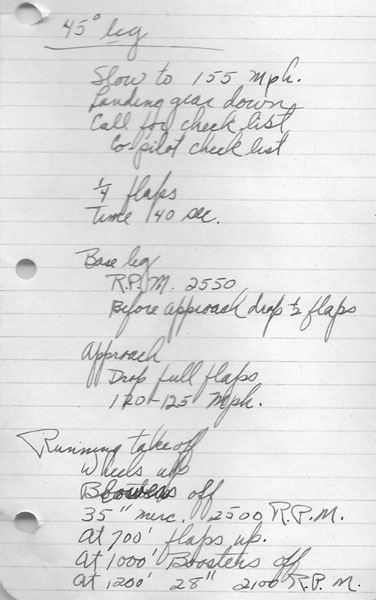 45° leg
Slow to 155 mph.
Landing gear down
Call for check list
Co-pilot check list
1/4 flaps
Time 40 sec.
Base leg
R.P.M. 2550
Before approach drop 1/2 flaps
Approach
Drop full flaps
120-125 Mph.
Running takeoff
Wheels up
off
35" merc. 2500 R.P.M.
At 700' flaps up.
At 1000' Boosters off
At 1200' 28" 2100 R.P.M.